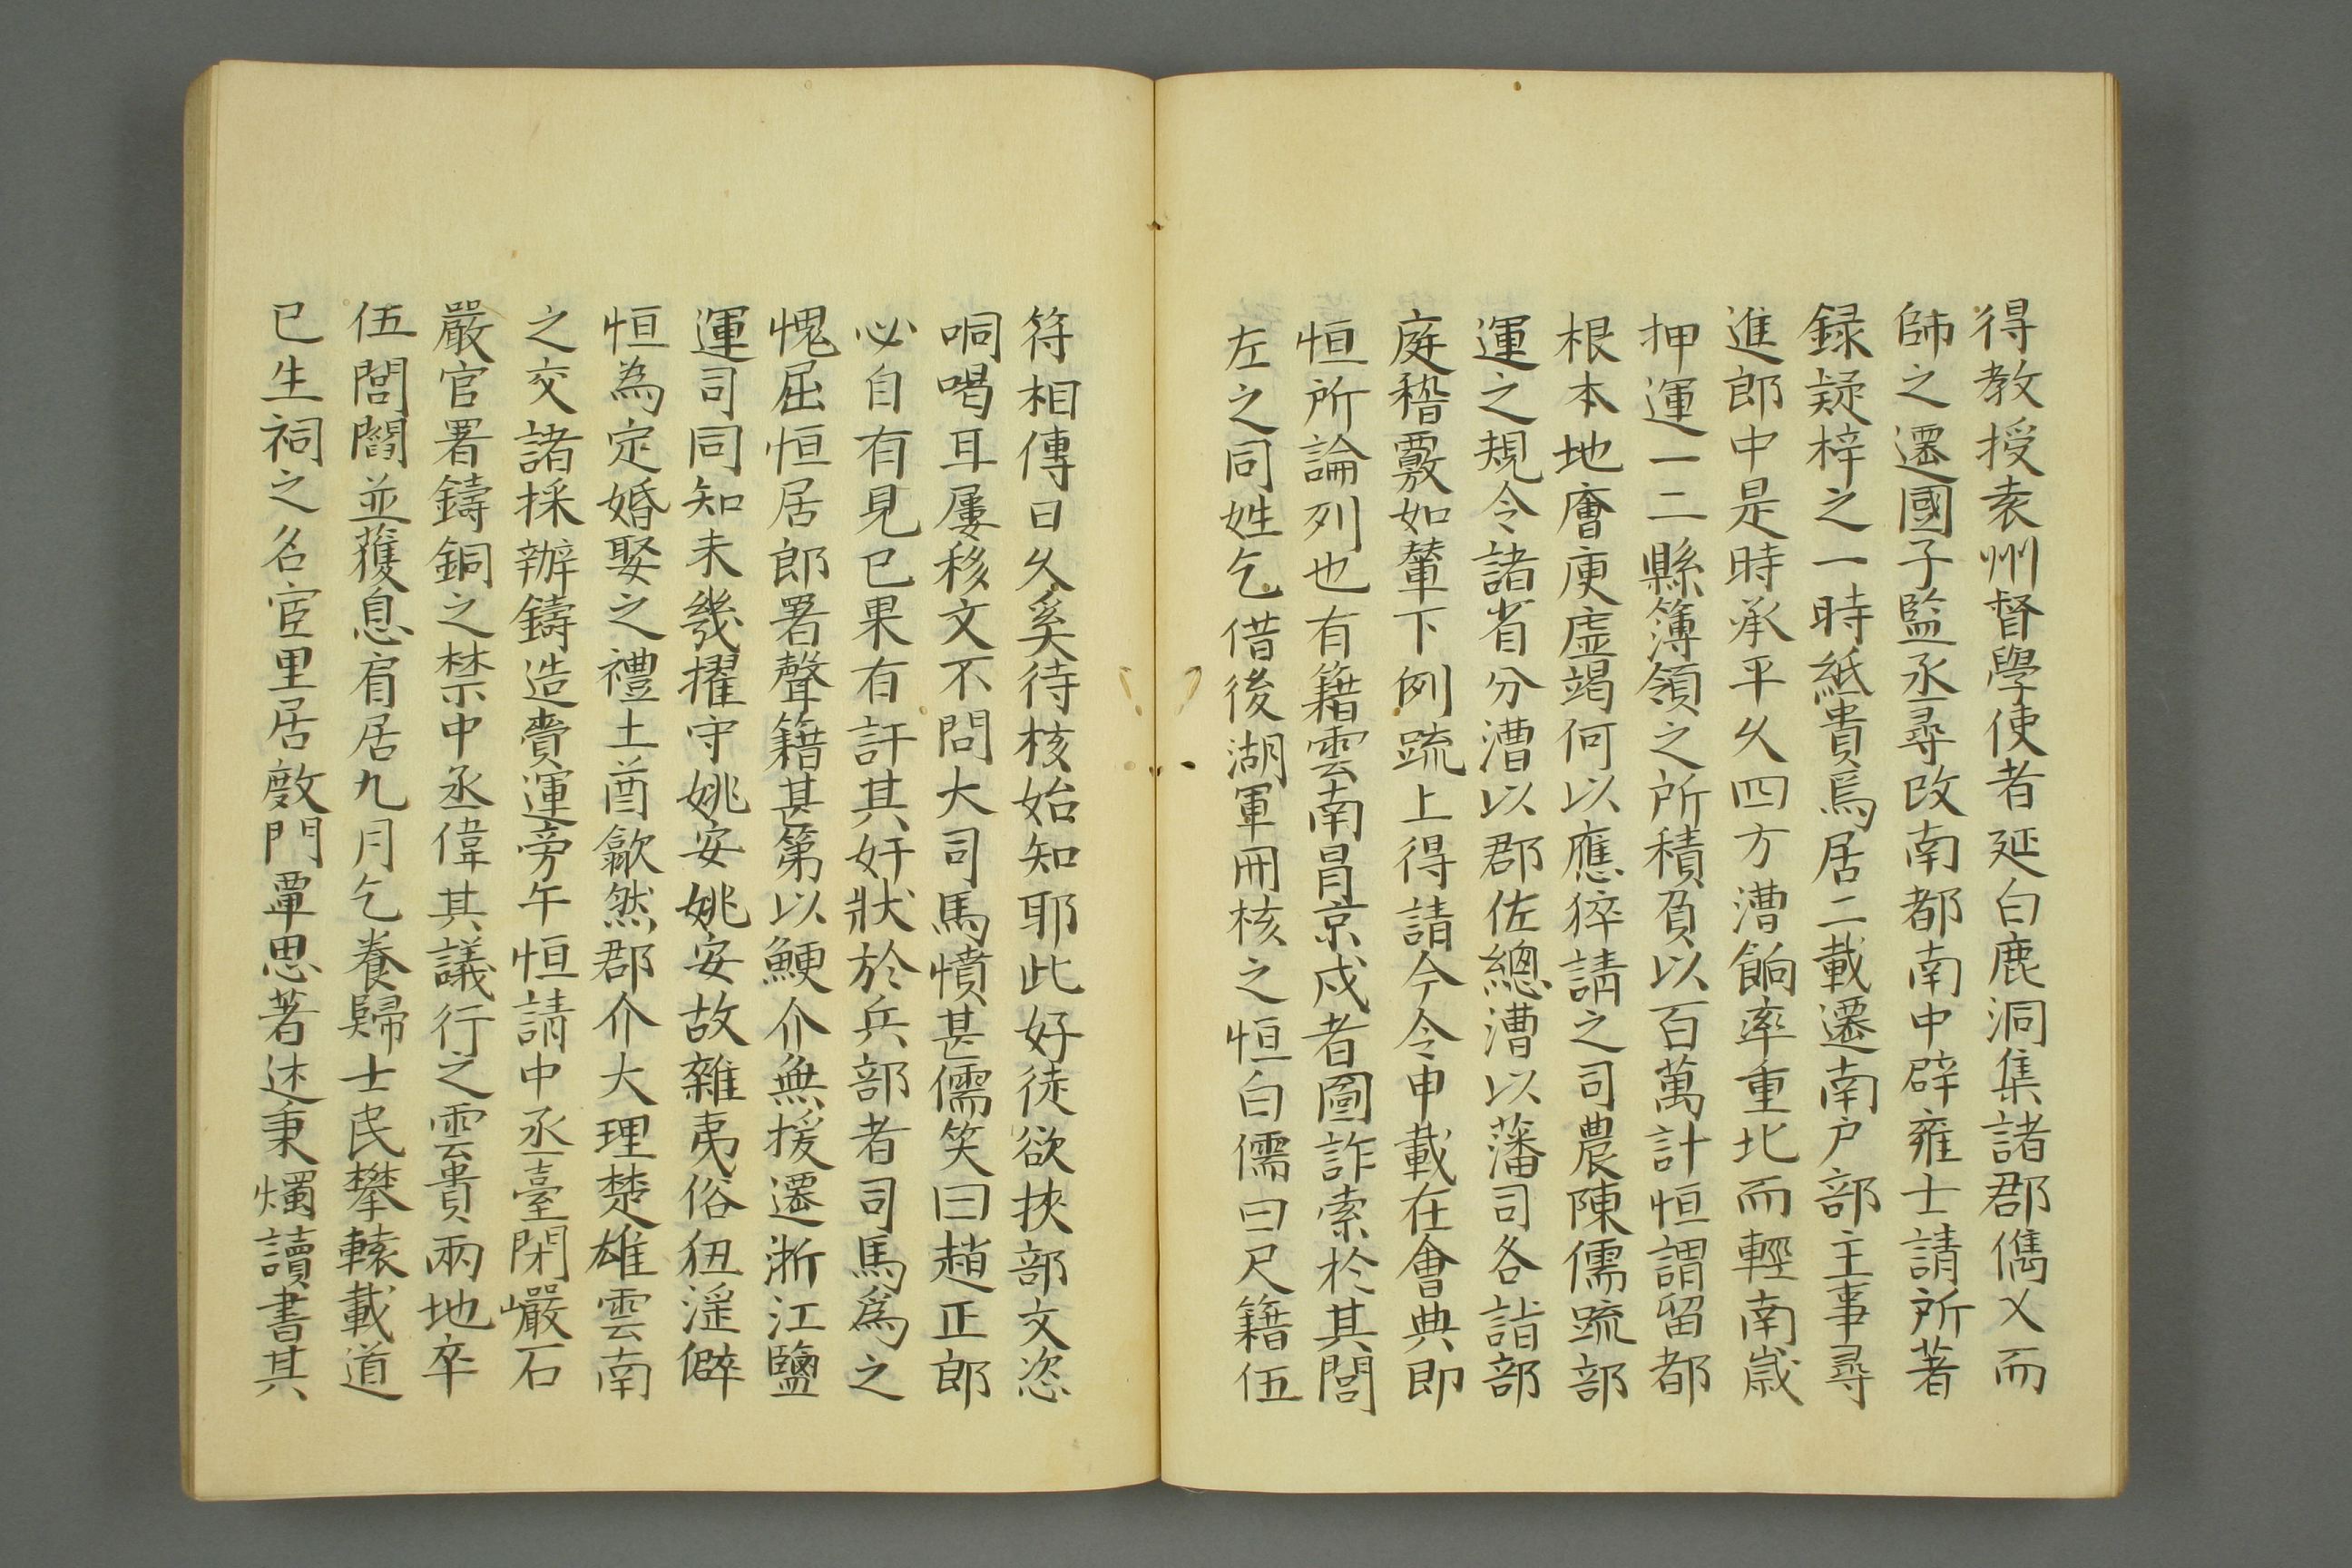 得教授袁州督學使者延白鹿洞集諸郡儁乂而
師之遷國子監丞尋改南都南中辟雍士請所著
録疑梓之一時紙貴焉居二載遷南户部主事尋
進郎中是時承平乆四方漕餉率重北而輕南歲
押運一二縣簿領之所積負以百萬計恒謂留都
根本地廥庾虛竭何以應猝請之司農陳儒疏部
運之規令諸省分漕以郡佐總漕以藩司各詣部
庭稽覈如輦下例疏上得請今令申載在會典即
恒所論列也有籍雲南冐京戍者圖詐索於其閭
左之同姓乞借後湖軍冊核之恒白儒曰尺籍伍
符相傳日乆奚待核始知耶此奸徒欲挾部文恣
哃喝耳屢移文不問大司馬憤甚儒笑曰趙正郎
必自有見已果有訐其奸狀於兵部者司馬爲之
愧屈恒居郎署聲籍甚第以鯁介無援遷浙江鹽
運司同知未幾擢守姚安姚安故雜夷俗狃淫僻
恒為定婚娶之禮土酋歙然郡介大理楚雄雲南
之交諸採辦鑄造賫運旁午恒請中丞臺閑巖石
嚴官署鑄銅之禁中丞偉其議行之雲貴兩地卒
伍閭閻並獲息肩居九月乞養歸士民攀轅載道
已生祠之名宦里居敿門覃思著述秉燭讀書其